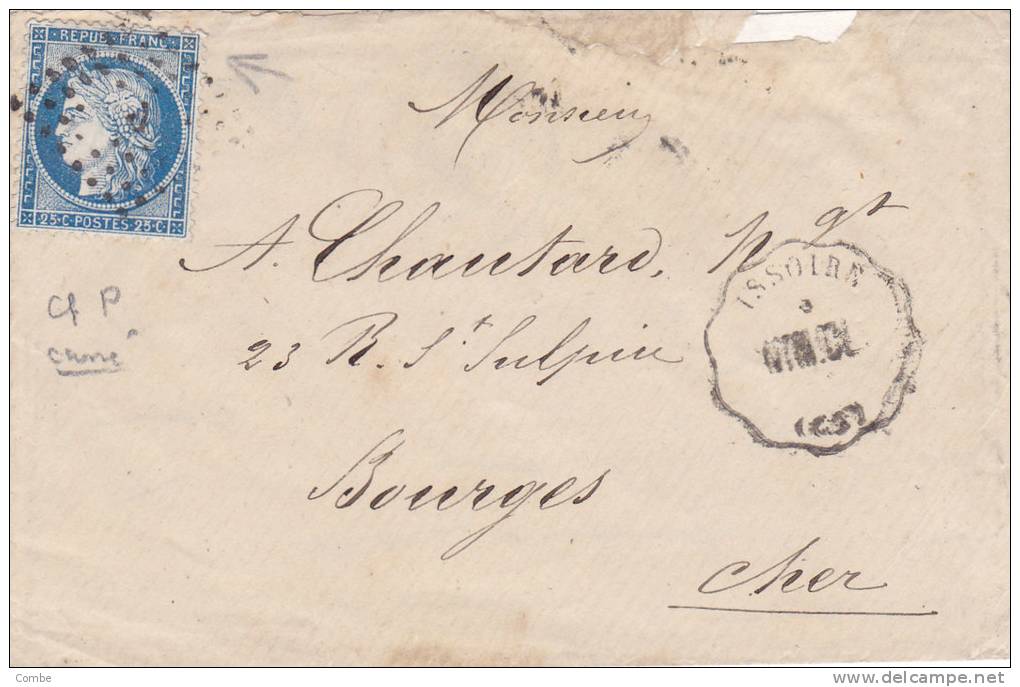 REPUB. FRANC.
25·C·POSTES·25·C·
Monsieur
A. Chautard, Ngt
23 R. St. Sulpice
Bourges
Cher
ISSOIRE
Combe
www.delcampe.net